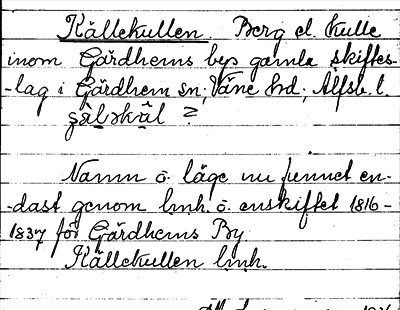 Källekullen. Berg el. kulle
inom Gärdhems bys gamla skiftes-
-lag i Gärdhem sn; Väne hd; Älfsb. l.
Namn o. läge nu funnet en-
-dast genom lmh. o. enskiftet 1816-
1837 för Gärdhems By
Källekullen lmh.